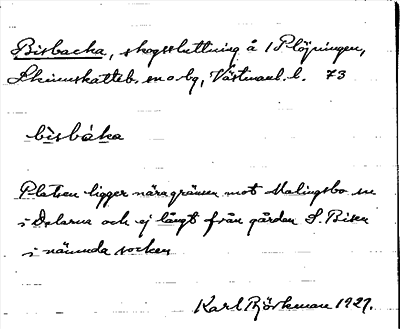 Bisbacka, skogssluttning å 1 Plöjningen,
Skinnskatteb. sn o. bg, Västmanl. l. 73
bìsbáka
Platsen ligger nära gränsen mot Malingsbo sn
i Dalarna och ej långt från gården S. Bisen
i nämnda socken
Karl Björkman 1927.